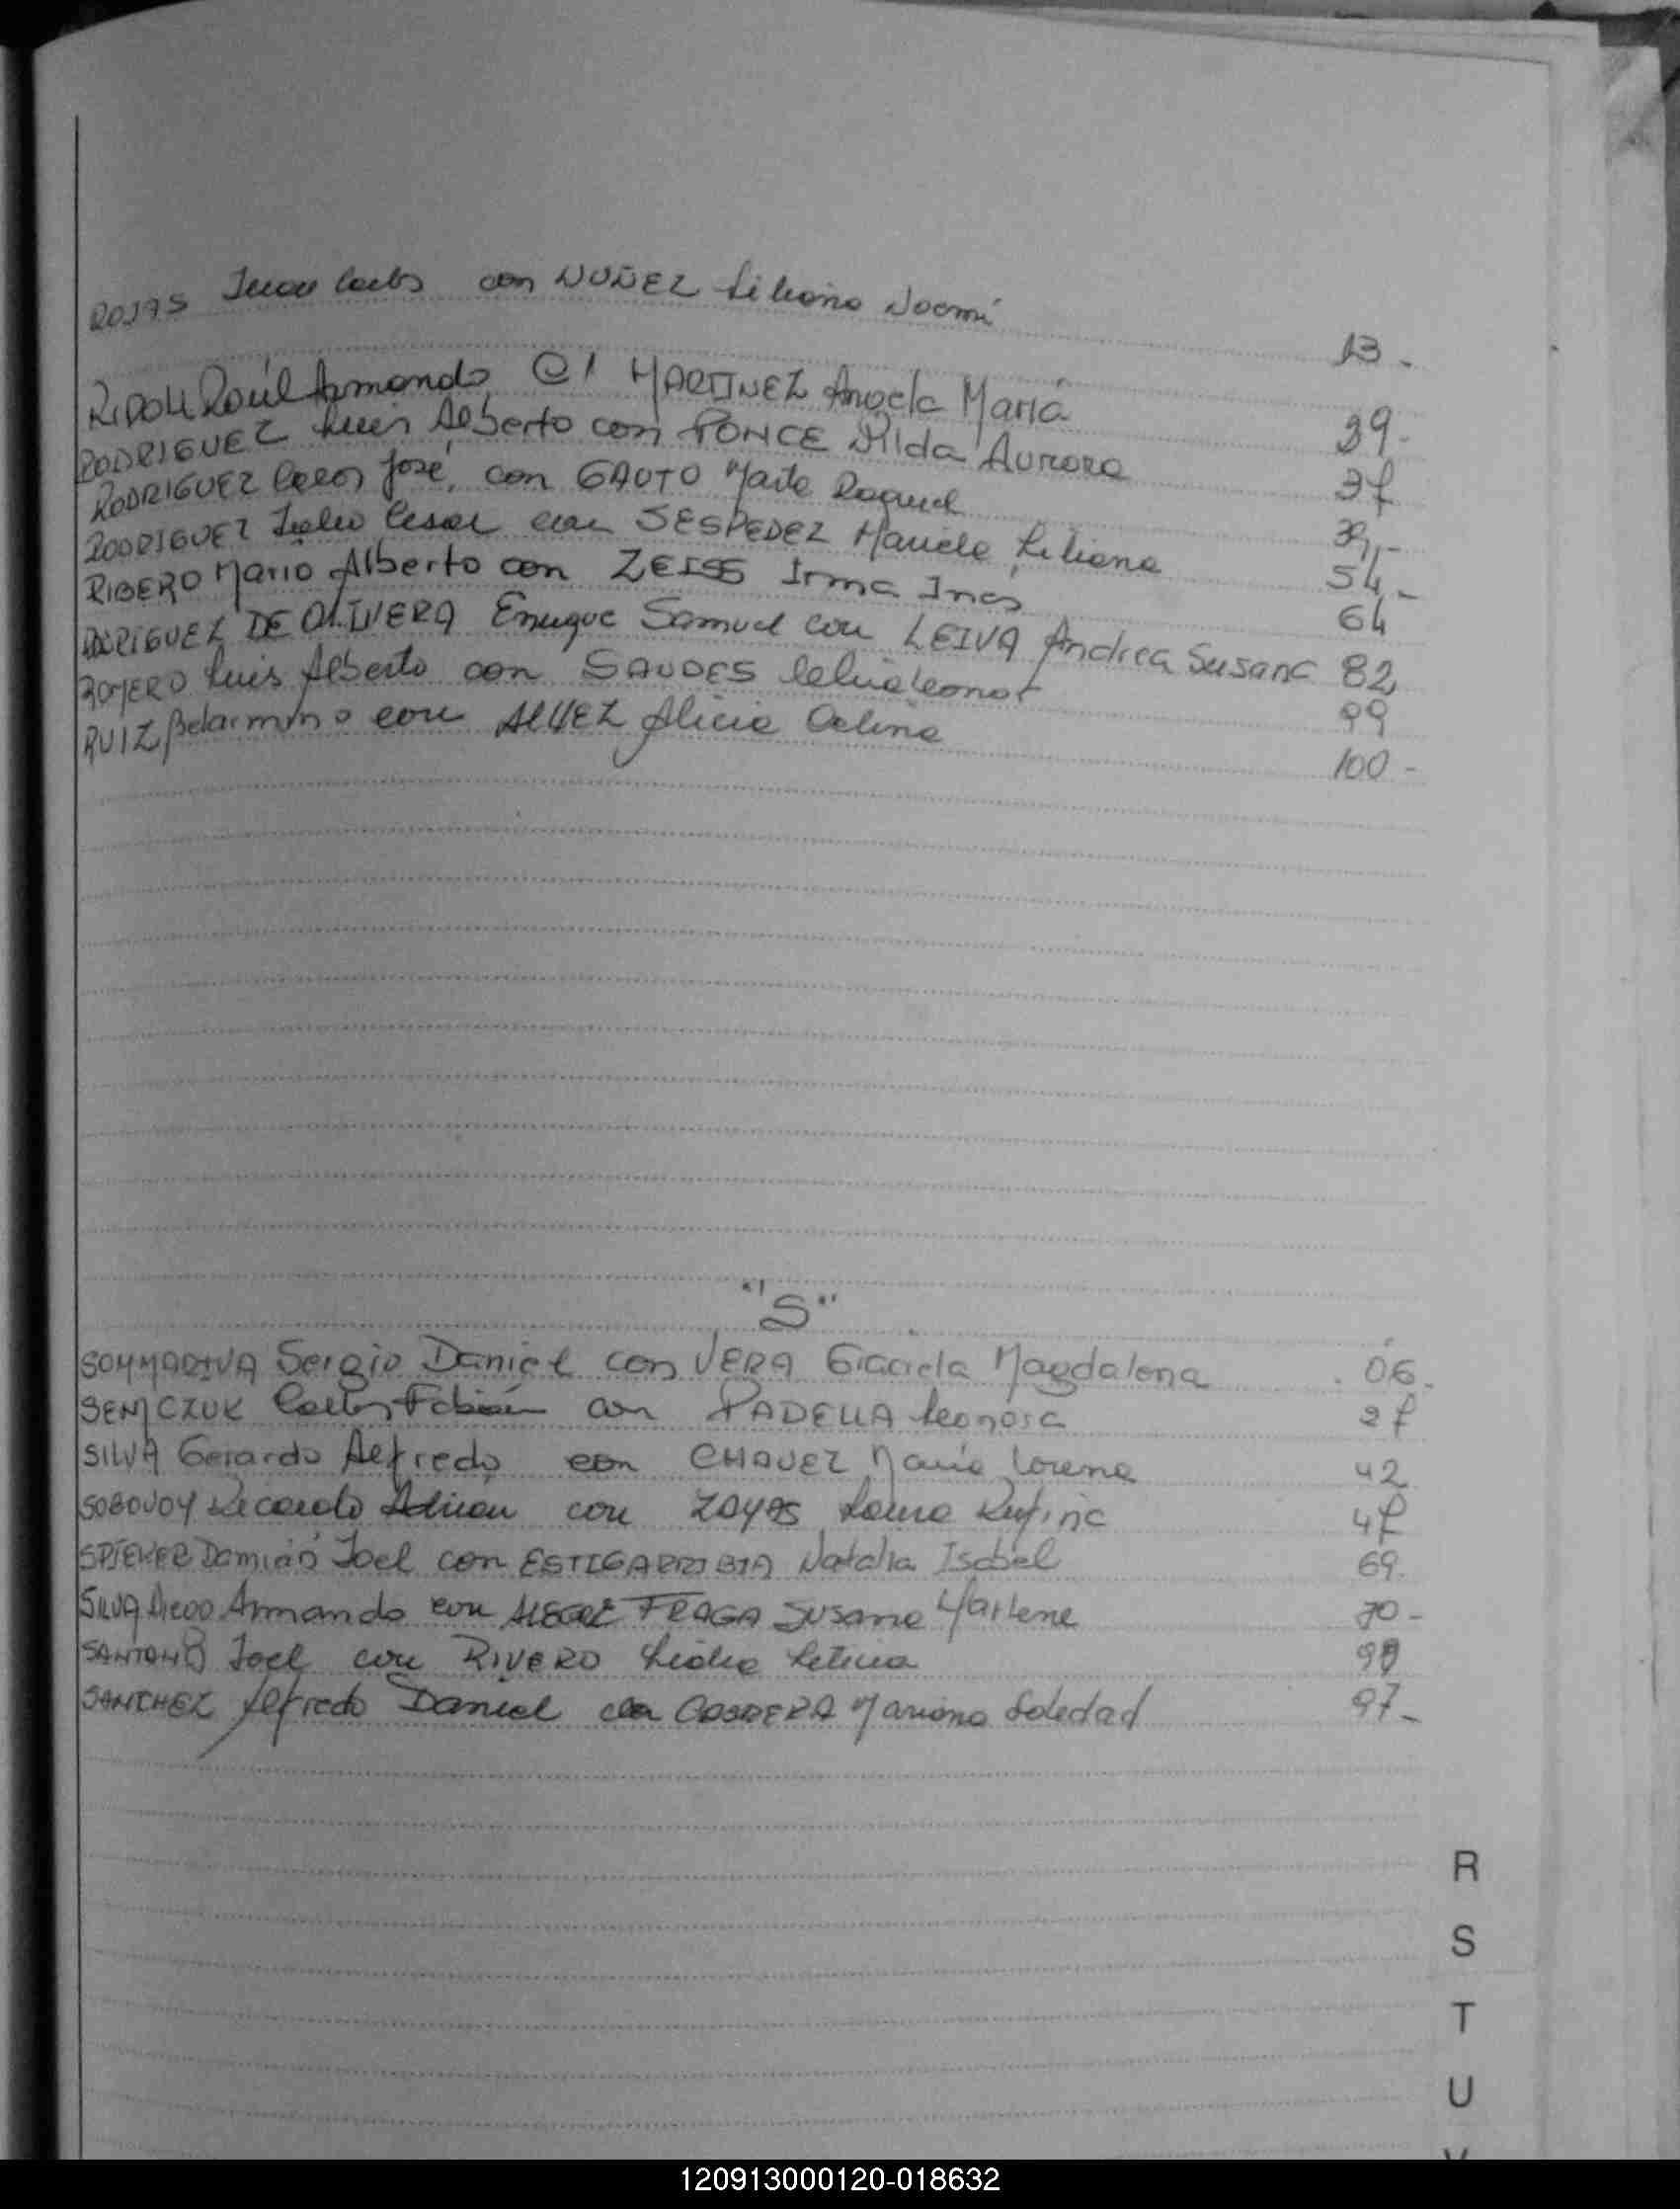 ROJAS Juan Carlos con NUÑEZ Liliana Noemí 13.-
RIPOLL Raúl Armando C/ MARTINEZ Angela María 39.-
RODRIGUEZ Luis Alberto con PONCE Ilda Aurora 37
RODRIGUEZ Carlos José, con GAUTO María Raquel 39,-
RODRIGUEZ Julio Cesar con SESPEDEZ Mariela Liliana 54,-
RIBERO Mario Alberto con ZEISS Irma Inés 64
RODRIGUEZ DE OLIVERA Enrique Samuel con LEIVA Andrea Susana 82,
ROMERO Luis Alberto con SAUDES Leonor 99
RUIZ Belarmino con ALVEZ Alicia Celina 100-
"S"
SOMMARIVA Sergio Daniel con VERA Graciela Magdalena 06.
SEMCZUK Carlos Fabián con PADELLA Leonora 27
SILVA Gerardo Alfredo con CHAVEZ María Lorena 42
SOBOVOY Ricardo Adrian con ZAYAS Laura Rufina 47
Damian Joel con ESTIGARRIBIA Natalia Isabel 69.
SILVA Diego Armando con ALEGRE FRAGA Susana Marlene 70-
Joel con RIVERO Lidia Leticia
SANCHEZ Alfredo Daniel con Mariana Soledad 97-
R
S
T
U
120913000120-018632